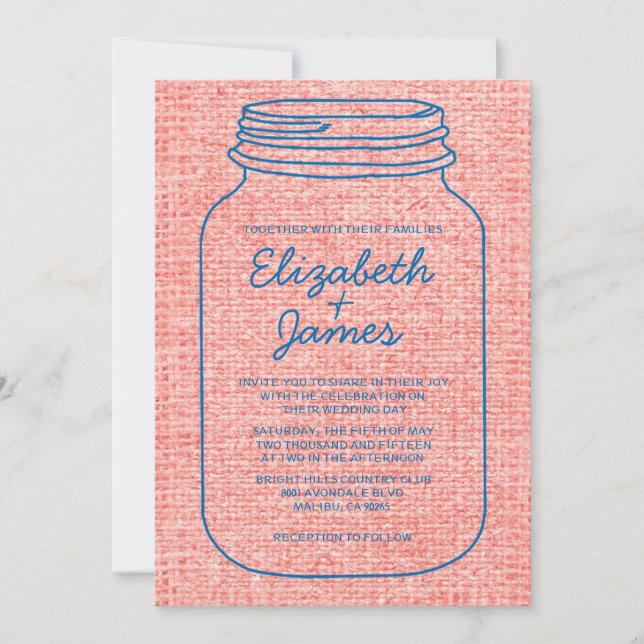 TOGETHER WITH THEIR FAMILIES
Elizabeth
+
James
INVITE YOU TO SHARE IN THEIR JOY
WITH THE CELEBRATION ON
THEIR WEDDING DAY
SATURDAY, THE FIFTH OF MAY
TWO THOUSAND AND FIFTEEN
AT TWO IN THE AFTERNOON
BRIGHT HILLS COUNTRY CLUB
8001 AVONDALE BLVD
MALIBU, CA 90265
RECEPTION TO FOLLOW